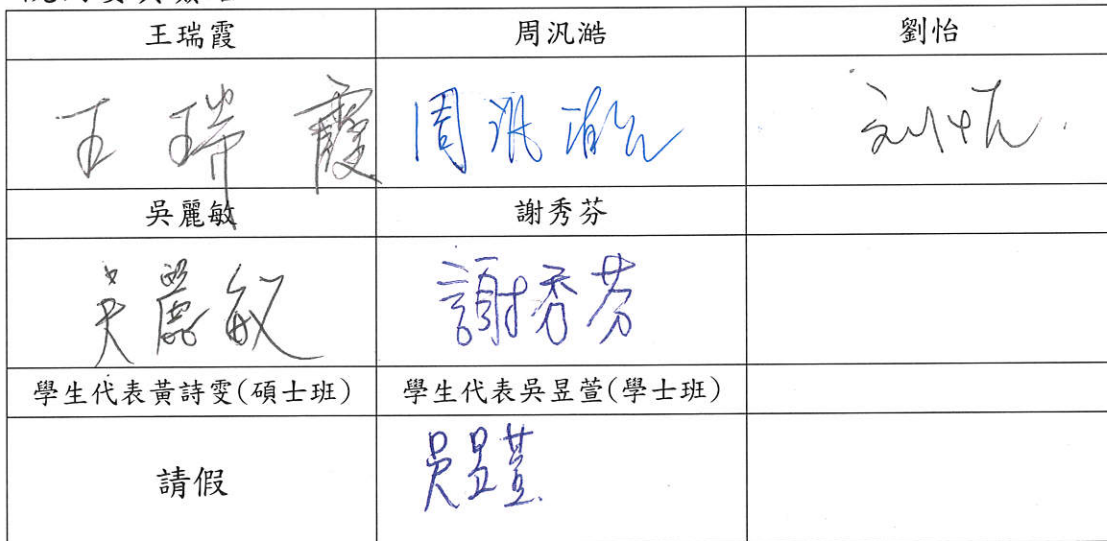 王瑞霞 周汎澔 劉怡
王瑞霞 周汎澔 刘怡
吳麗敏 謝秀芬
吳麗敏 謝秀芬
學生代表黃詩雯(碩士班) 學生代表吳昱萱(學士班)
請假 吳昱萱